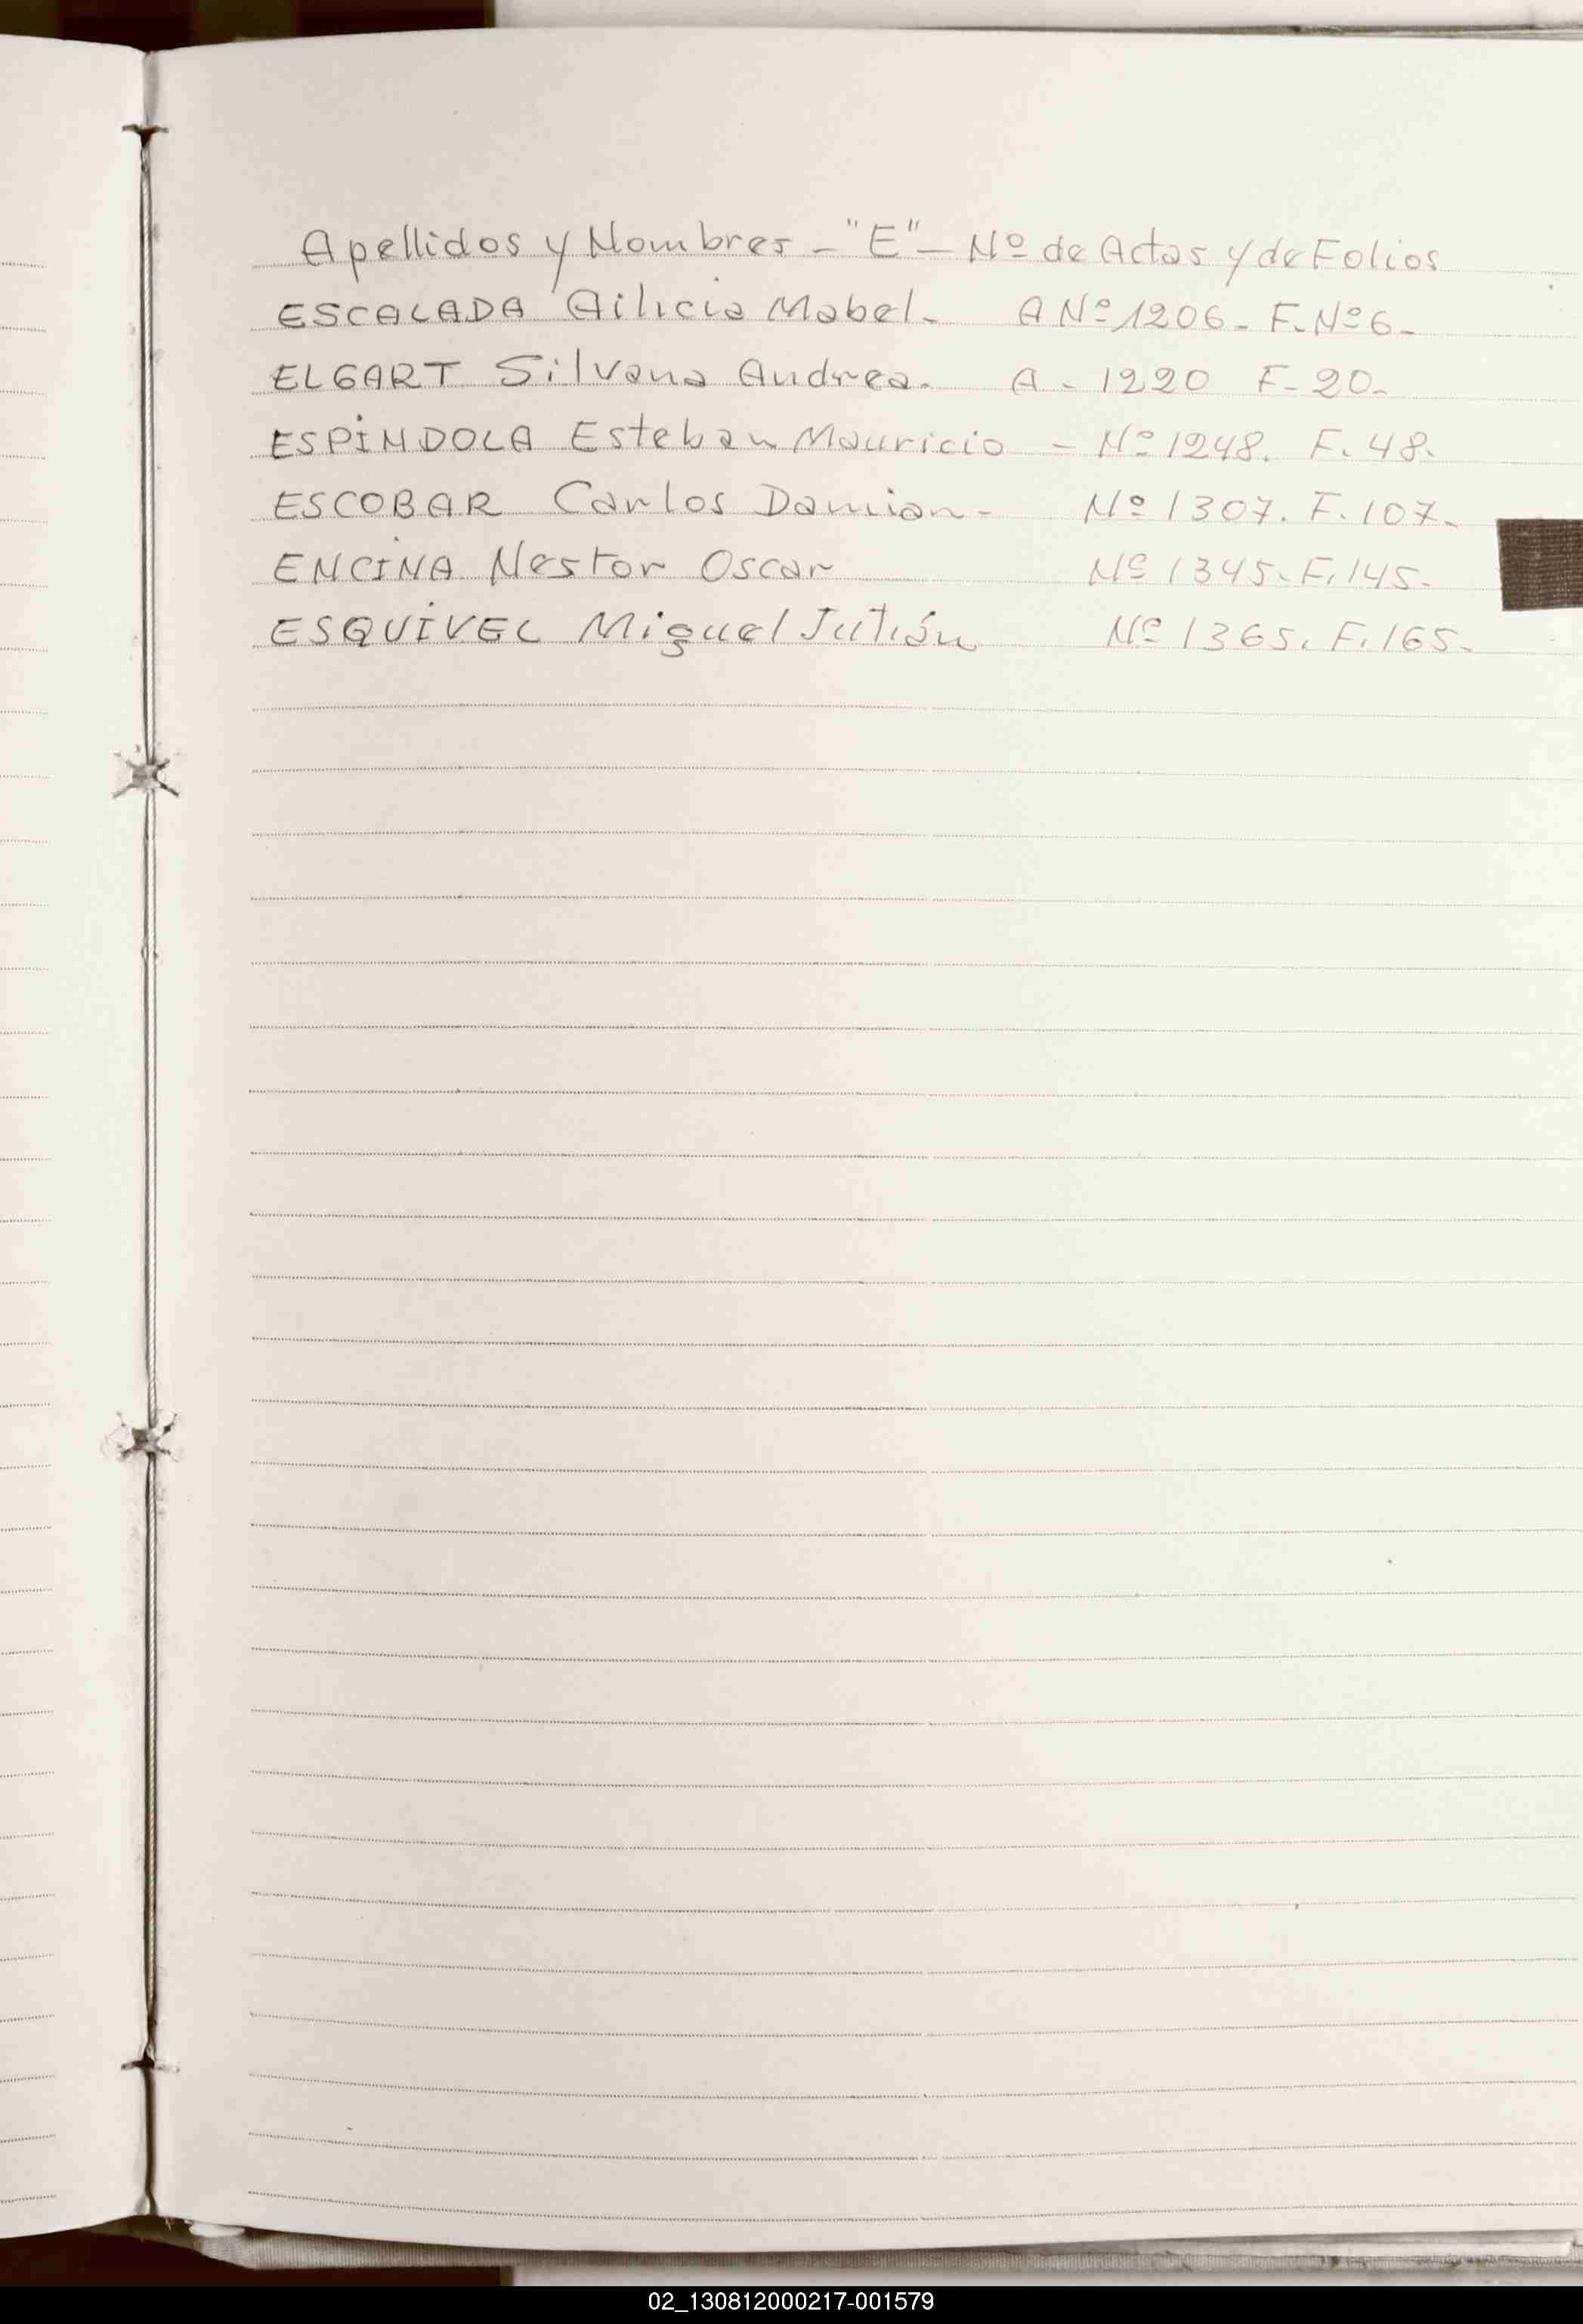 Apellidos y Nombres - "E" - Nº de Actas y de Folios
ESCALADA Ailicia Mabel. A Nº 1206. F. Nº 6.
ELGART Silvana Andrea. A - 1220 F- 20.
ESPINDOLA Esteban Mauricio - Nº 1248. F. 48.
ESCOBAR Carlos Damian - Nº 1307. F. 107.
ENCINA Nestor Oscar Nº 1345. F. 145.
ESQUIVEL Miguel Julián Nº 1365. F. 165.
02_130812000217-001579